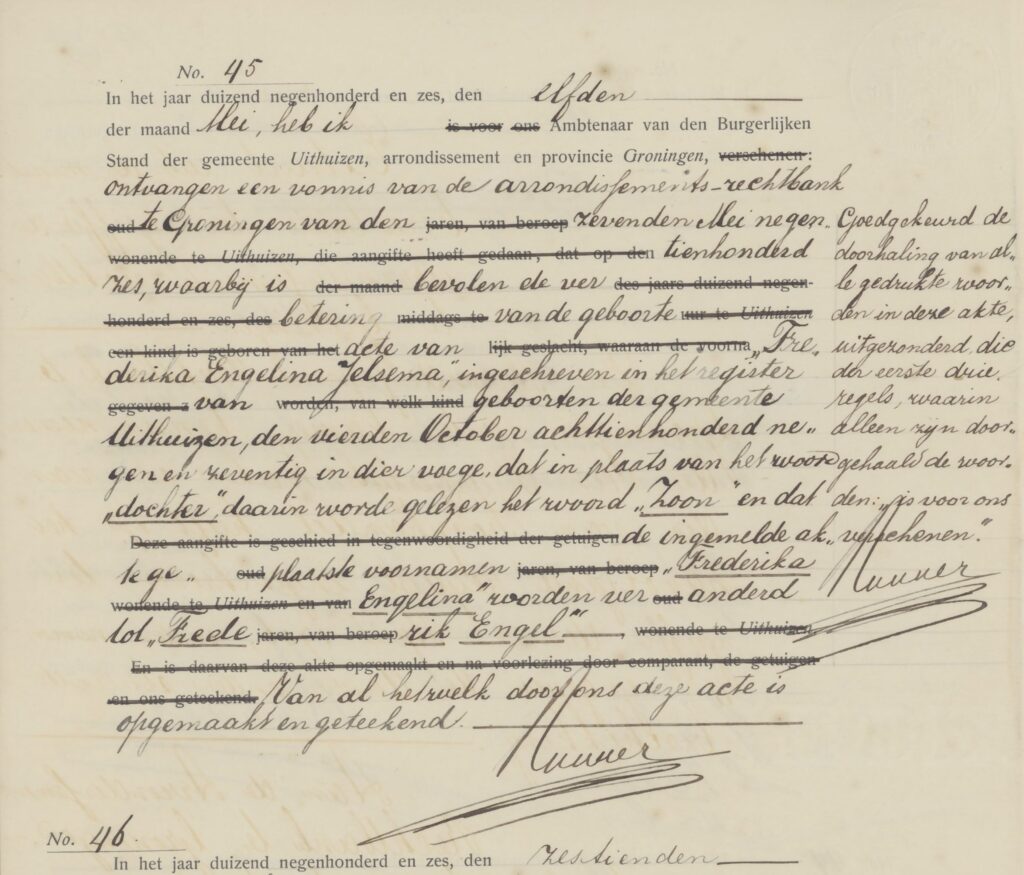 No. 45
In het jaar duizend negenhonderd en zes, den elfden
der maand Mei, heb ik is voor ons Ambtenaar van den Burgerlijken
Stand der gemeente Uithuizen, arrondissement en provincie Groningen, verschenen:
ontvangen een vonnis van de arrondissements-rechtbank
oud te Groningen van den jaren, van beroep zevenden Mei negen„
wonende te Uithuizen, die aangifte heeft gedaan, dat op den tienhonderd
zes, waarbij is der maand bevolen de ver des jaars duizend negen-
honderd en zes, des betering middags te van de geboorte uur te Uithuizen
een kind is geboren van het acte van lijk geslacht, waaraan de voorna „Fre„
derika Engelina Jelsema", ingeschreven in het register
gegeven z van worden, van welk kind geboorten der gemeente
Uithuizen, den vierden October achttienhonderd ne„
gen en zeventig in dier voege, dat in plaats van het woord
„dochter", daarin worde gelezen het woord „Zoon" en dat
Deze aangifte is geschied in tegenwoordigheid der getuigen de ingemelde ak„
te ge„ oud plaatste voornamen jaren, van beroep „Frederika
wonende te Uithuizen en van Engelina" worden ver oud anderd
tot „Frede jaren, van beroep rik Engel" wonende te Uithuizen,
En is daarvan deze akte opgemaakt en na voorlezing door comparant, de getuigen
en ons geteekend. Van al hetwelk door ons deze acte is
opgemaakt en geteekend.
Goedgekeurd de
doorhaling van al„
le gedrukte woor„
den in deze akte,
uitgezonderd die
der eerste drie
regels, waarin
alleen zijn door„
gehaald de woor„
den: „is voor ons
verschenen".
No. 46
In het jaar duizend negenhonderd en zes, den zestienden